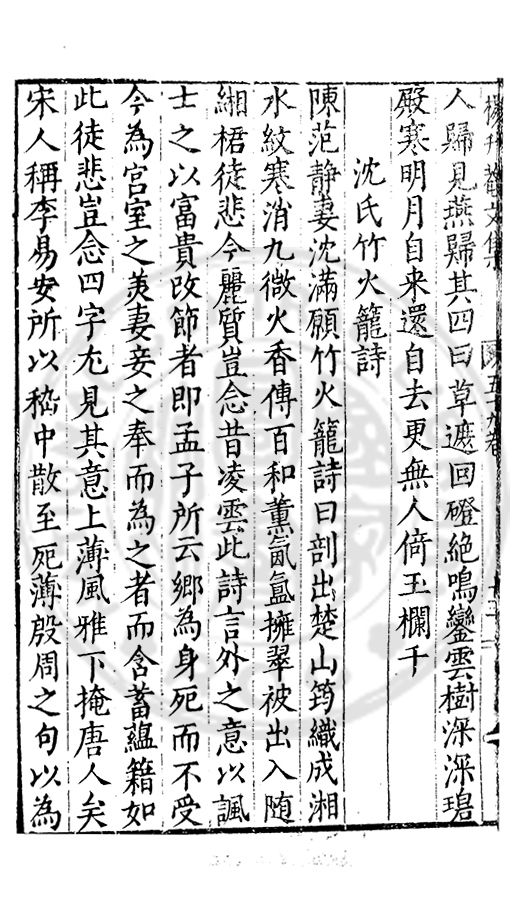 人歸見燕歸其四曰草遮回磴絶鳴鑾雲樹深深碧
殿寒明月自来還自去更無人倚玉欄干
沈氏竹火籠詩
陳范静妻沈滿願竹火籠詩曰剖出楚山筠織成湘
水紋寒消九微火香傳百和薰氤氲擁翠被出入随
緗裙徒悲今麗質豈念昔凌雲此詩言外之意以諷
士之以富貴改節者即孟子所云鄉為身死而不受
今為宫室之美妻妾之奉而為之者而含蓄藴籍如
此徒悲豈念四字尤見其意上薄風雅下掩唐人矣
宋人稱李易安所以嵇中散至死薄殷周之句以為